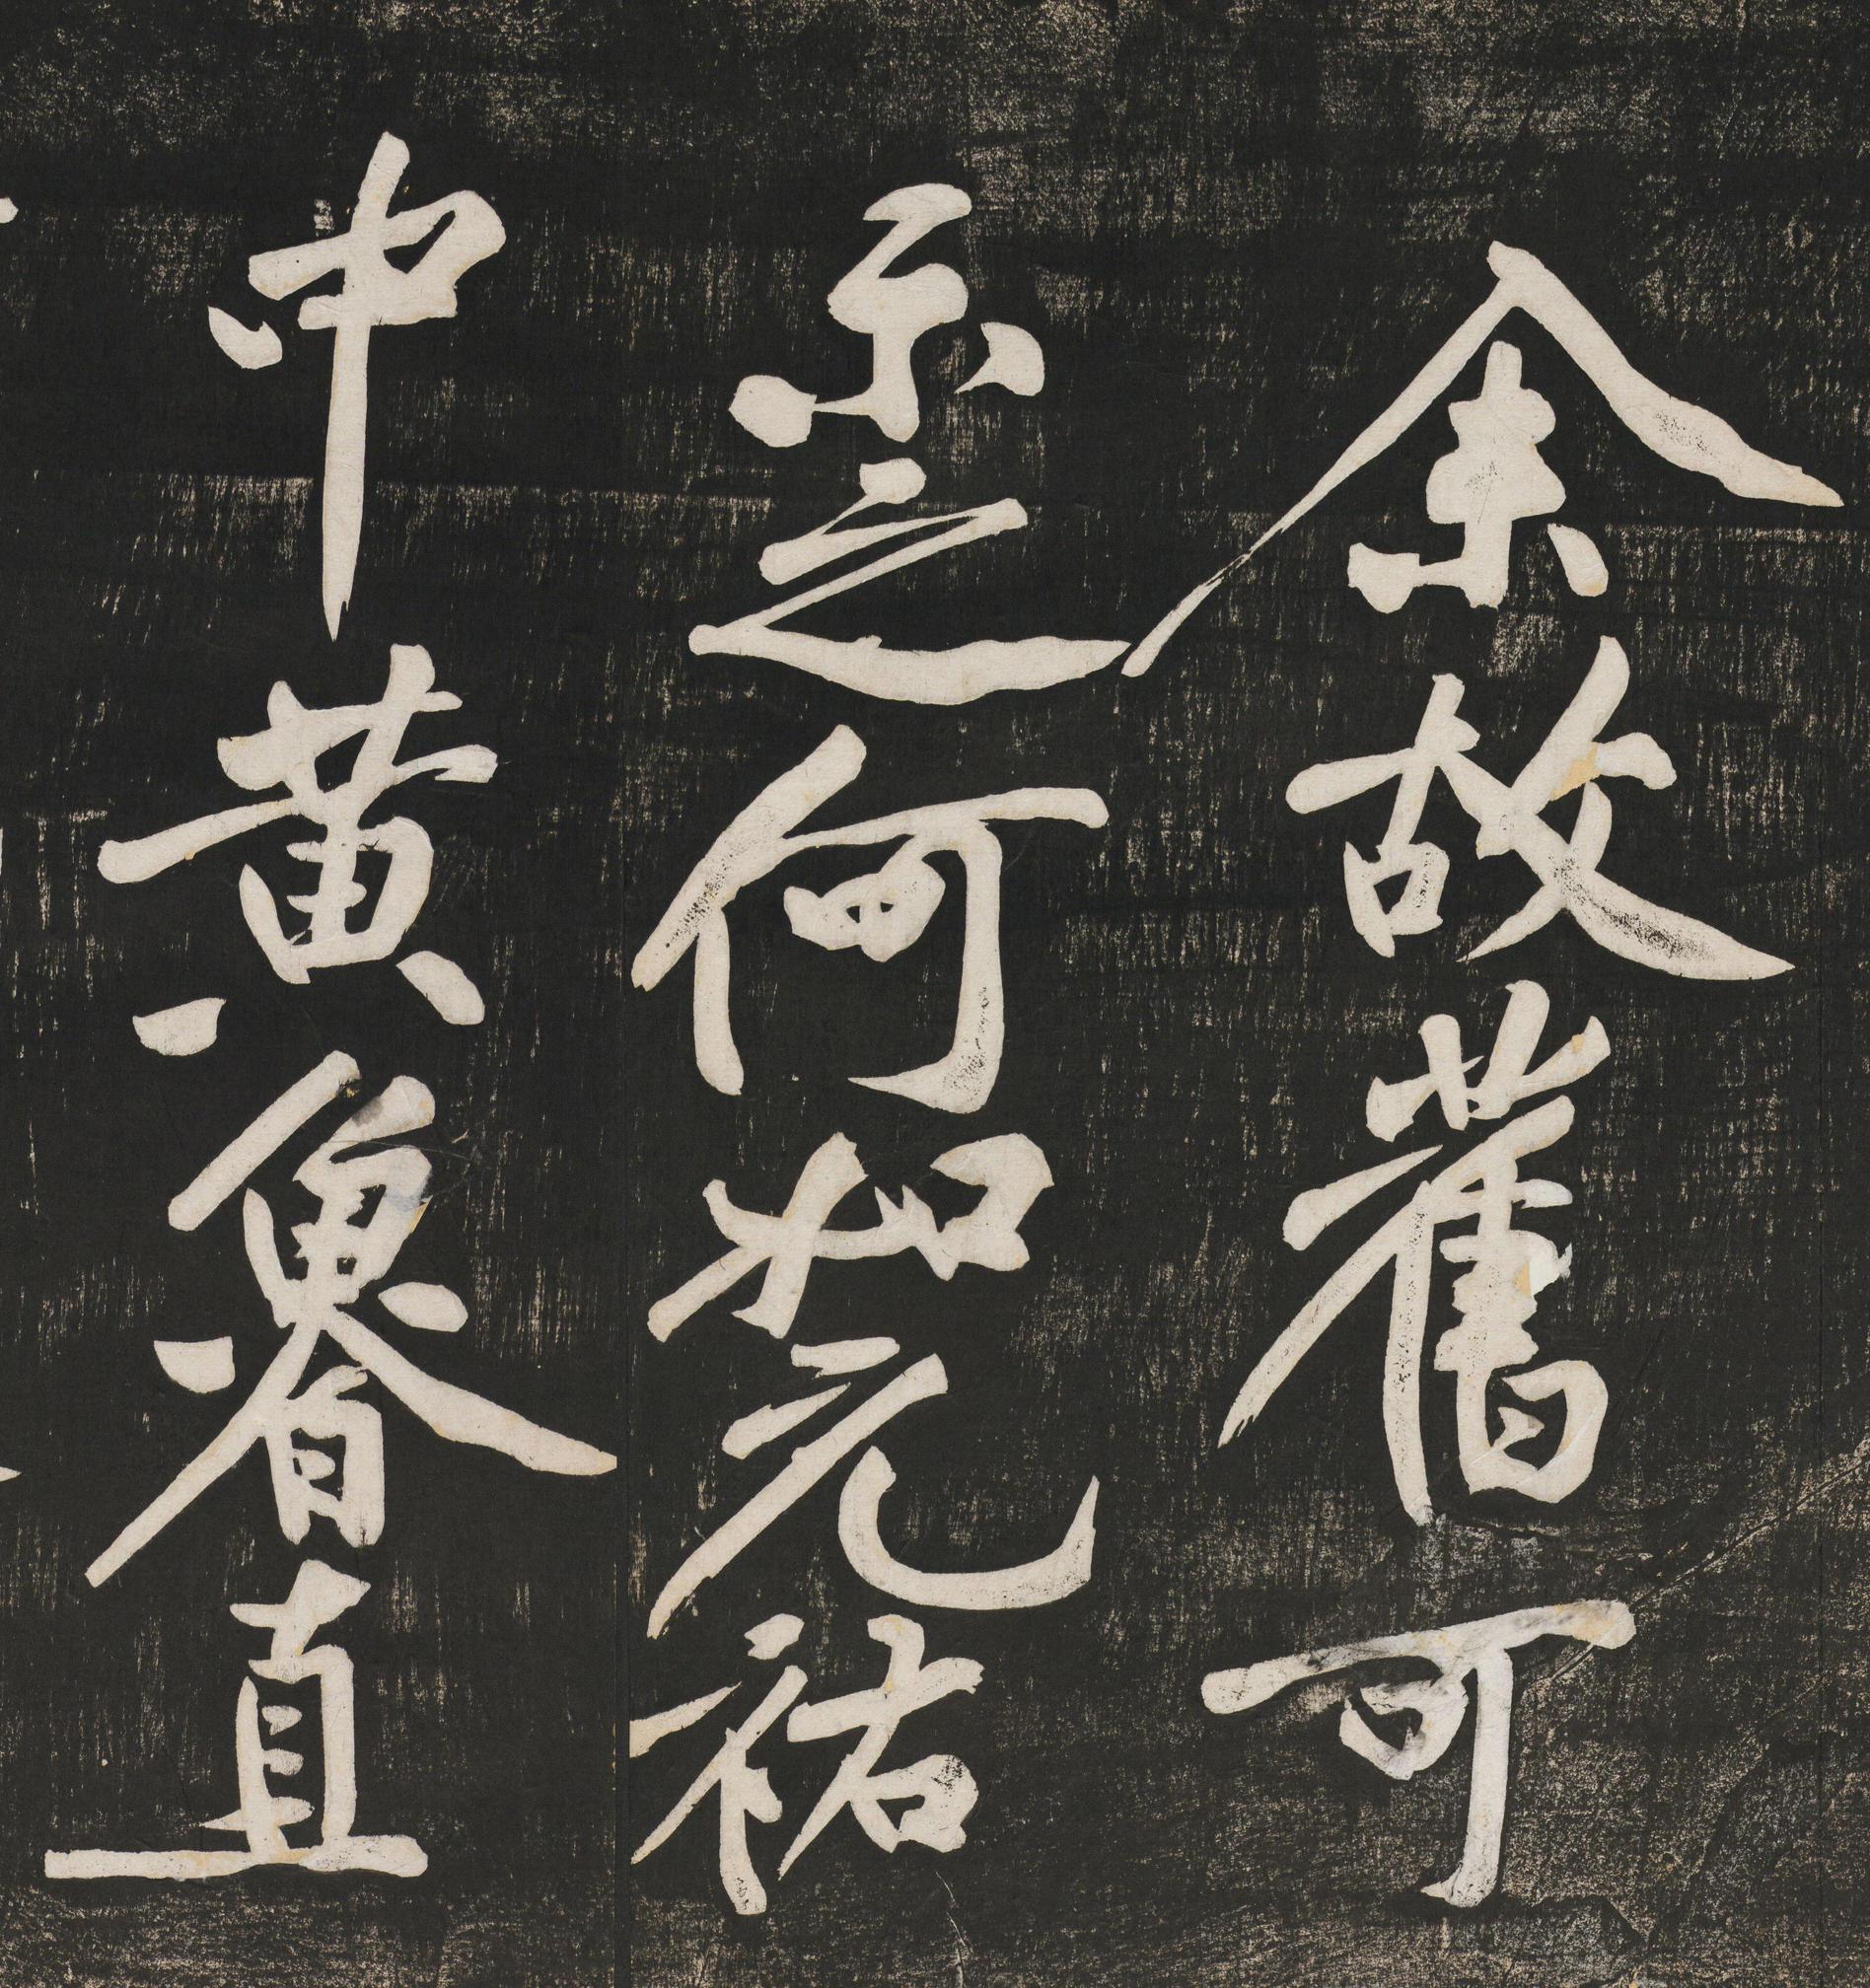 余故舊可
示之何如元祐
中黃魯直